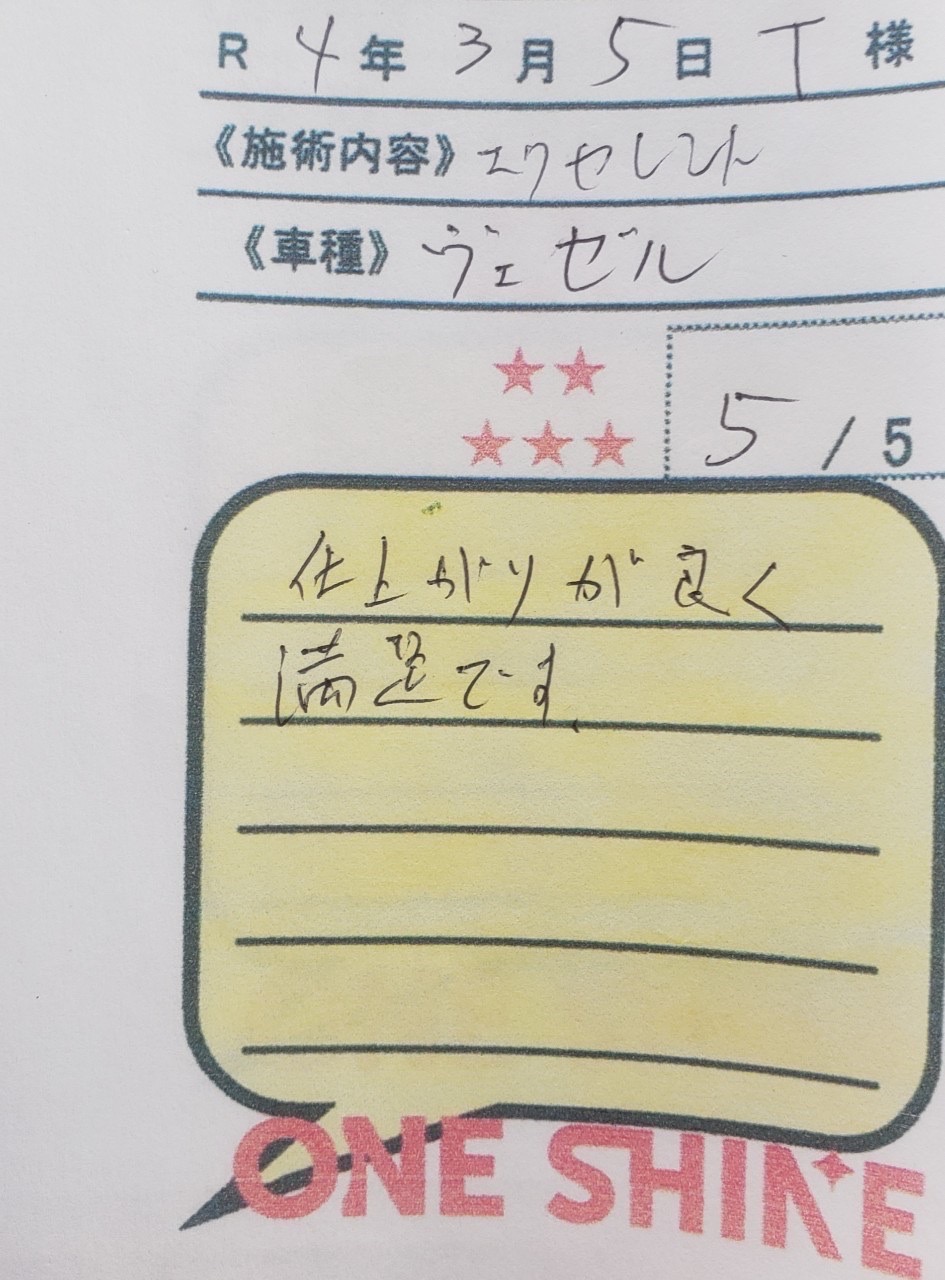 R 4年 3月 5日 T 様
《施術内容》エクセレント
《車種》ヴェゼル
★★
★★★
5 / 5
仕上がりが良く
満足です。
ONE SHINE